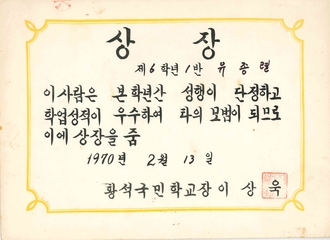 상 장
제6학년1반 유종열
이사람은 본학년간 성행이 단정하고
학업성적이 우수하여 타의 모범이 되므로
이에 상장을 줌
1970년 2월 13일
황석국민학교장 이상욱